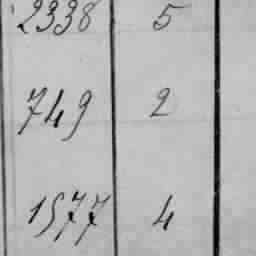 2338 5
749 2
1577 4